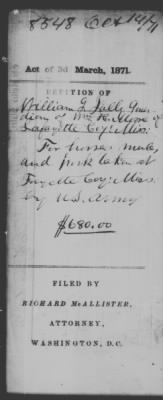 8548 Oct 14/71
Act of 3d March, 1871.
PETITION OF
William G. Sally Guar-
dian of Wm H.
Lafayette Coy Miss.
For horses, mules,
and pork taken at
Fayette Coy Miss
by U.S. Army
$680.00
FILED BY
RICHARD McALLISTER,
ATTORNEY,
WASHINGTON, D.C.